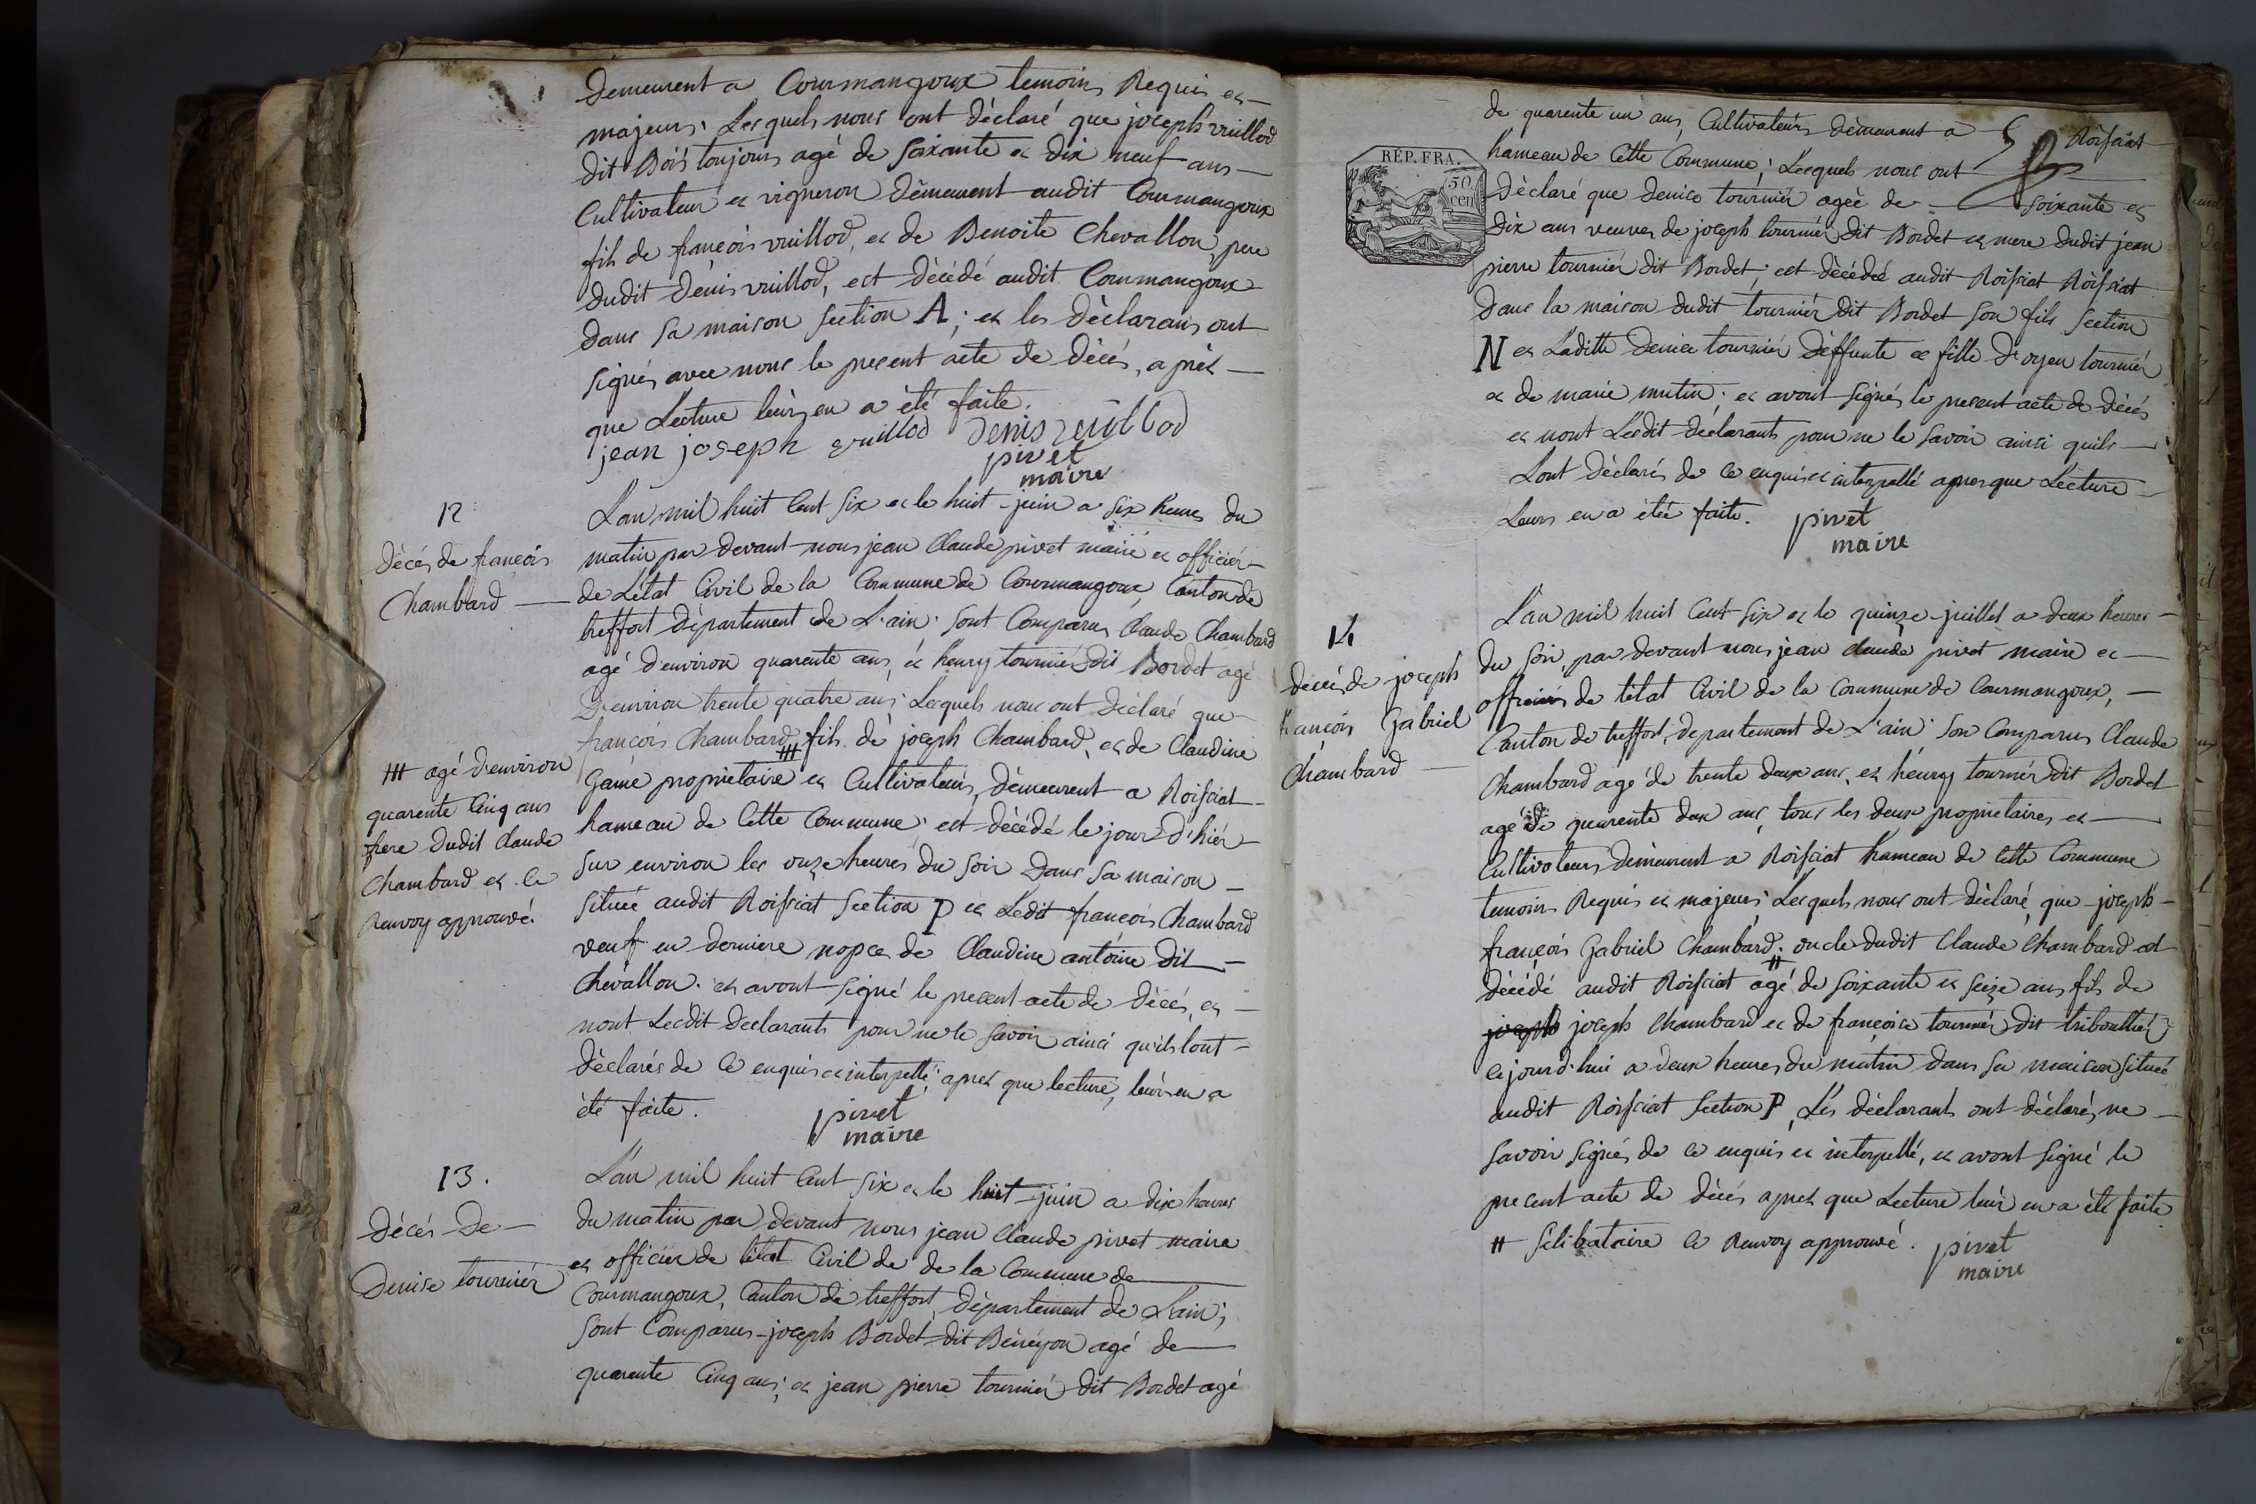 demeurent a Courmangoux temoins Requis et
majeurs. Lesquels nous ont dèclaré que joseph vuillod
dit Bois toujours agé de soixante et dix neuf ans
Cultivateur et vigneron dèmeurent audit Courmangoux
fils de françois vuillod, et de Benoite Chevallon, pere
dudit dènis vuillod, est dècèdé audit Courmangoux
dans sa maison section A; et les dèclarans ont
signés avec nous le present acte de dècés, aprèt
que Lecture leurs en a èté faite.
jean joseph vuillod denis vuillod
pivet
maire
12
dècés de françois
Chambard
L'an mil huit Cent six et le huit juin a six heures du
matin par devant nous jean Claude pivet maire et officier
de L'ètat Civil de la Commune de Courmangoux, Canton de
treffort dèpartement de L'ain; sont Comparus Claude Chambard
agé d'environ quarente ans, et henry tournier dit Bordet agé
D'environ trente quatre ans; Lesquels nous ont dèclaré que
françois Chambard, fils de joseph Chambard, et de Claudine
Game proprietaire et Cultivateurs, dèmeurent a Roissiat
hameau de Cette Commune; est dècèdé le jour d'hièr
sur environ les onze heures du soir Dans sa maison
située audit Roissiat section P et Ledit françois Chambard
veuf en derniere nopce de Claudine antoine dit
Chevallon. et avont signé le present acte de dècés, et
nont Lesdit declarants pour ne le savoir ainsi qu'ils lont
dèclarés de Ce enquis et interpellé; apret que lecture, leurs en a
èté faite.
pivet
maire
## agé d'environ
quarente Cinq ans
frere dudit Claude
Chambard et le
Renvoy approuvé.
13.
Dècés De
Denise tournièr
L'an mil huit Cent six et le huit juin a dix heures
du matin par devant nous jean Claude pivet maire
et officier de lètat Civil de de la Commune de
Courmangoux, Canton de treffort, dèpartement de Lain;
sont Comparus joseph Bordet dit agé de
quarente Cinq ans; et jean pierre tournièr dit Bordet agé
de quarente un ans, Cultivateurs dèmeurent a Roissiat
hameau de Cette Commune; Lesquels nous ont
RÉP. FRA.
50
cen
dèclaré que denise tournièr agèè de soixante et
dix ans veuves de joseph tournièr dit Bordet et mere dudit jean
pierre tournièr dit Bordet; est dècèdèè audit Roissiat Roissiat
Dans la maison dudit tournièr dit Bordet son fils section
N et Laditte denise tournièr dèffunte et fille D'oyen tournièr
et de marie mutin; et avont signés le present acte de dècés
et nont Lesdit dèclarants pour ne le savoir ainsi quils
Lont dèclarés de Ce enquis et interpellé apres que Lecture
Leurs en a étèè faite.
pivet
maire
14
dècés de joseph
françois Gabriel
Chambard
L'an mil huit Cent six et le quinze juillet a deux heures
du soir, par devant nous jean Claude pivet maire et
officiers de lètat Civil de la Commune de Courmangoux,
Canton de treffort, departement de L'ain; son Comparus Claude
Chambard agé de trente deux ans, et hènry tournièr dit Bordet
agé de quarente deux ans, tous les deux proprietaires et
Cultivateurs dèmeurent a Roissiat hameau de Cette Commune
temoins Requis et majeurs; Lesquels nous ont dèclaré, que joseph
françois Gabriel Chambard; oncle dudit Claude Chambard est
dècèdé audit Roissiat agé de soixante et seize ans fils de
joseph joseph Chambard et de françoise tournièr dit tribouttier
Ce jourd'hui a deux heures du matin dans sa maison située
audit Roissiat section P, Lès dèclarants ont dèclarés, ne
savoir signés de Ce enquis et interpellé, et avont signé le
present acte de dècés apret que Lecture leur en a èté faite
# Sèlibataire Ce Renvoy approuvé.
pivet
maire